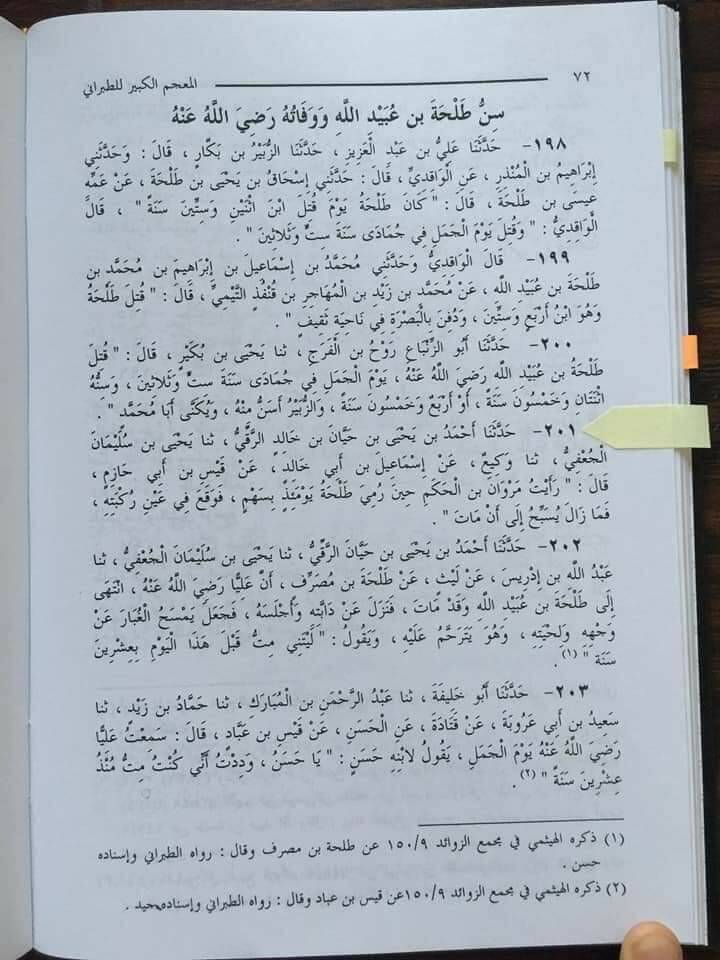 ٧٢ المعجم الكبير للطبراني
سِنُّ طَلْحَةَ بن عُبَيْد اللَّهِ وَوَفَاتُهُ رَضِيَ اللَّهُ عَنْهُ
١٩٨- حَدَّثَنَا عَلِيُّ بن عَبْدِ الْعَزِيزِ ، حَدَّثَنَا الزُّبَيْرُ بن بَكَّارٍ ، قَالَ : وَحَدَّثَنِي
إِبْرَاهِيمُ بن الْمُنْذِرِ ، عَنِ الْوَاقِدِيِّ ، قَالَ : حَدَّثَنِي إِسْحَاقُ بن يَحْيَى بن طَلْحَةَ ، عَنْ عَمِّهِ
عِيسَى بن طَلْحَةَ ، قَالَ : " كَانَ طَلْحَةُ يَوْمَ قُتِلَ ابْنَ اثْنَتَيْنِ وَسِتِّينَ سَنَةً " ، قَالَ
الْوَاقِدِيُّ : " وَقُتِلَ يَوْمَ الْجَمَلِ فِي جُمَادَى سَنَةَ سِتٍّ وَثَلاثِينَ " .
١٩٩- قَالَ الْوَاقِدِيُّ وَحَدَّثَنِي مُحَمَّدُ بن إِسْمَاعِيلَ بن إِبْرَاهِيمَ بن مُحَمَّدِ بن
طَلْحَةَ بن عُبَيْدِ اللَّه ، عَنْ مُحَمَّدِ بن زَيْدِ بن الْمُهَاجِرِ بن قُنْفُذٍ التَّيْمِيِّ ، قَالَ : " قُتِلَ طَلْحَةُ
وَهُوَ ابْنُ أَرْبَعٍ وَسِتِّينَ ، وَدُفِنَ بِالْبَصْرَةِ فِي نَاحِيَةِ ثَقِيفٍ " .
٢٠٠- حَدَّثَنَا أَبُو الزِّنْبَاعِ رَوْحُ بن الْفَرَجِ ، ثنا يَحْيَى بن بُكَيْرٍ ، قَالَ : " قُتِلَ
طَلْحَةُ بن عُبَيْدِ اللَّهِ رَضِيَ اللَّهُ عَنْهُ ، يَوْمَ الْجَمَلِ فِي جُمَادَى سَنَةَ سِتٍّ وَثَلاثِينَ ، وَسِنُّهُ
اثْنَتَانِ وَخَمْسُونَ سَنَةً ، أَوْ أَرْبَعٌ وَخَمْسُونَ سَنَةً ، وَالزُّبَيْرُ أَسَنُّ مِنْهُ ، وَيُكَنَّى أَبَا مُحَمَّد " .
٢٠١- حَدَّثَنَا أَحْمَدُ بن يَحْيَى بن حَيَّانَ بن خَالِدٍ الرَّقِّيُّ ، ثنا يَحْيَى بن سُلَيْمَانَ
الْجُعْفِيُّ ، ثنا وَكِيعٌ ، عَنْ إِسْمَاعِيلَ بن أَبِي خَالِد ، عَنْ قَيْسِ بن أَبِي حَازِمٍ ،
قَالَ : " رَأَيْتُ مَرْوَانَ بن الْحَكَمِ حِينَ رُمِيَ طَلْحَةُ يَوْمَئِذٍ بِسَهْمٍ ، فَوَقَعَ فِي عَيْنِ رُكْبَتِهِ ،
فَمَا زَالَ يُسَبِّحُ إِلَى أَنْ مَاتَ " .
٢٠٢- حَدَّثَنَا أَحْمَدُ بن يَحْيَى بن حَيَّانَ الرَّقِّيُّ ، ثنا يَحْيَى بن سُلَيْمَانَ الْجُعْفِيُّ ، ثنا
عَبْدُ اللَّهِ بن إِدْرِيسَ ، عَنْ لَيْثٍ ، عَنْ طَلْحَةَ بن مُصَرِّفٍ ، أَنَّ عَلِيًّا رَضِيَ اللَّهُ عَنْهُ ، انْتَهَى
إِلَى طَلْحَةَ بن عُبَيْدِ اللَّهِ وَقَدْ مَاتَ ، فَنَزَلَ عَنْ دَابَّتِهِ وَأَجْلَسَهُ ، فَجَعَلَ يَمْسَحُ الْغُبَارَ عَنْ
وَجْهِهِ وَلِحْيَتِهِ ، وَهُوَ يَتَرَحَّمُ عَلَيْهِ ، وَيَقُولُ : " لَيْتَنِي مِتُّ قَبْلَ هَذَا الْيَوْمِ بِعِشْرِينَ
سَنَة " (١) .
٢٠٣- حَدَّثَنَا أَبُو خَلِيفَةَ ، ثنا عَبْدُ الرَّحْمَنِ بن الْمُبَارَكِ ، ثنا حَمَّادُ بن زَيْدٍ ، ثنا
سَعِيدُ بن أَبِي عَرُوبَةَ ، عَنْ قَتَادَةَ ، عَنِ الْحَسَنِ ، عَنْ قَيْسِ بن عَبَّادٍ ، قَالَ : سَمِعْتُ عَلِيًّا
رَضِيَ اللَّهُ عَنْهُ يَوْمَ الْجَمَلِ ، يَقُولُ لابْنِهِ حَسَنٍ : " يَا حَسَنُ ، وَدِدْتُ أَنِّي كُنْتُ مِتُّ مُنْذُ
عِشْرِينَ سَنَةً " (٢) .
(١) ذكره الهيثمي في مجمع الزوائد ١٥٠/٩ عن طلحة بن مصرف وقال : رواه الطبراني وإسناده
حسن .
(٢) ذكره الهيثمي في مجمع الزوائد ١٥٠/٩عن قيس بن عباد وقال : رواه الطبراني وإسناده جيد .